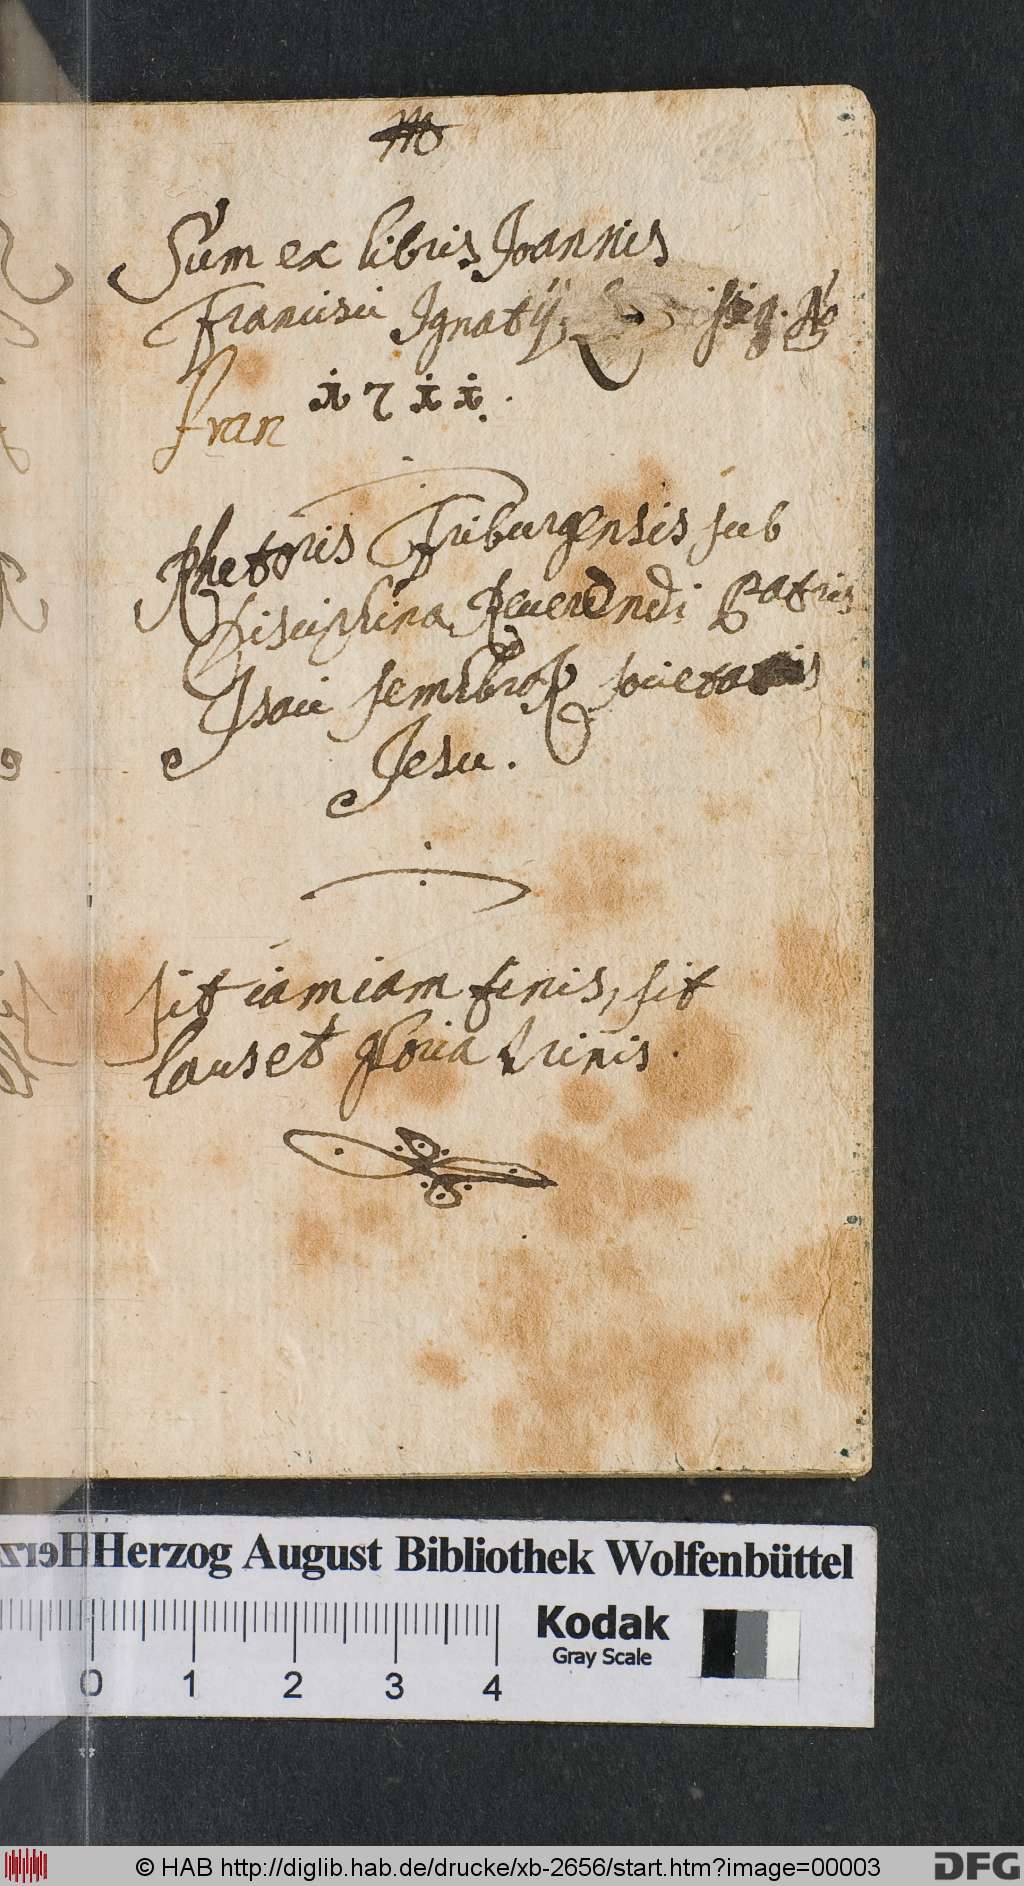 Sum ex libris Joannis
Francisci Ignatij
1711.
Fran
Rhetoris Friburgensis sub
disciplina Reverendi Patris
Isaci societatis
Jesu.
sit iam iam finis, sit
laus et gloria trinis.
Herzog August Bibliothek Wolfenbüttel
Kodak
Gray Scale
0 1 2 3 4
© HAB http://diglib.hab.de/drucke/xb-2656/start.htm?image=00003
DFG